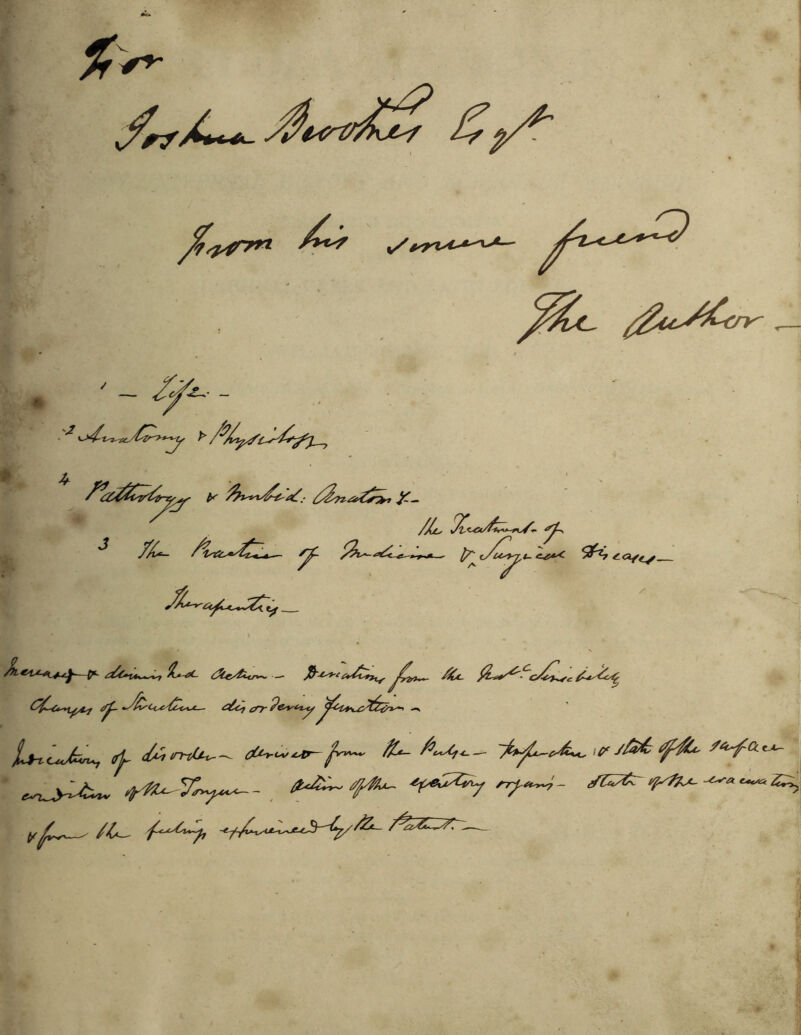 For
Joshua Brookes Esqr.
from his sincere friend
The Author —
1 — Life. —
2 Anatomy & Physiology
4 Pathology & Morbid: Anatomy —
the Treatment of
3 The Practice of Medicine & Surgical Diseases —
Therapeutics —
Increased & diminished Action — Deviations from the Sensibility
Changes of Structure disordering function —
Indications of disorder — derived from the Pulse — Respiration & state of the surface
condition of the Tongue — Action of the excretory organs — State of the evacuations
& from the feelings experienced by the Patient. —